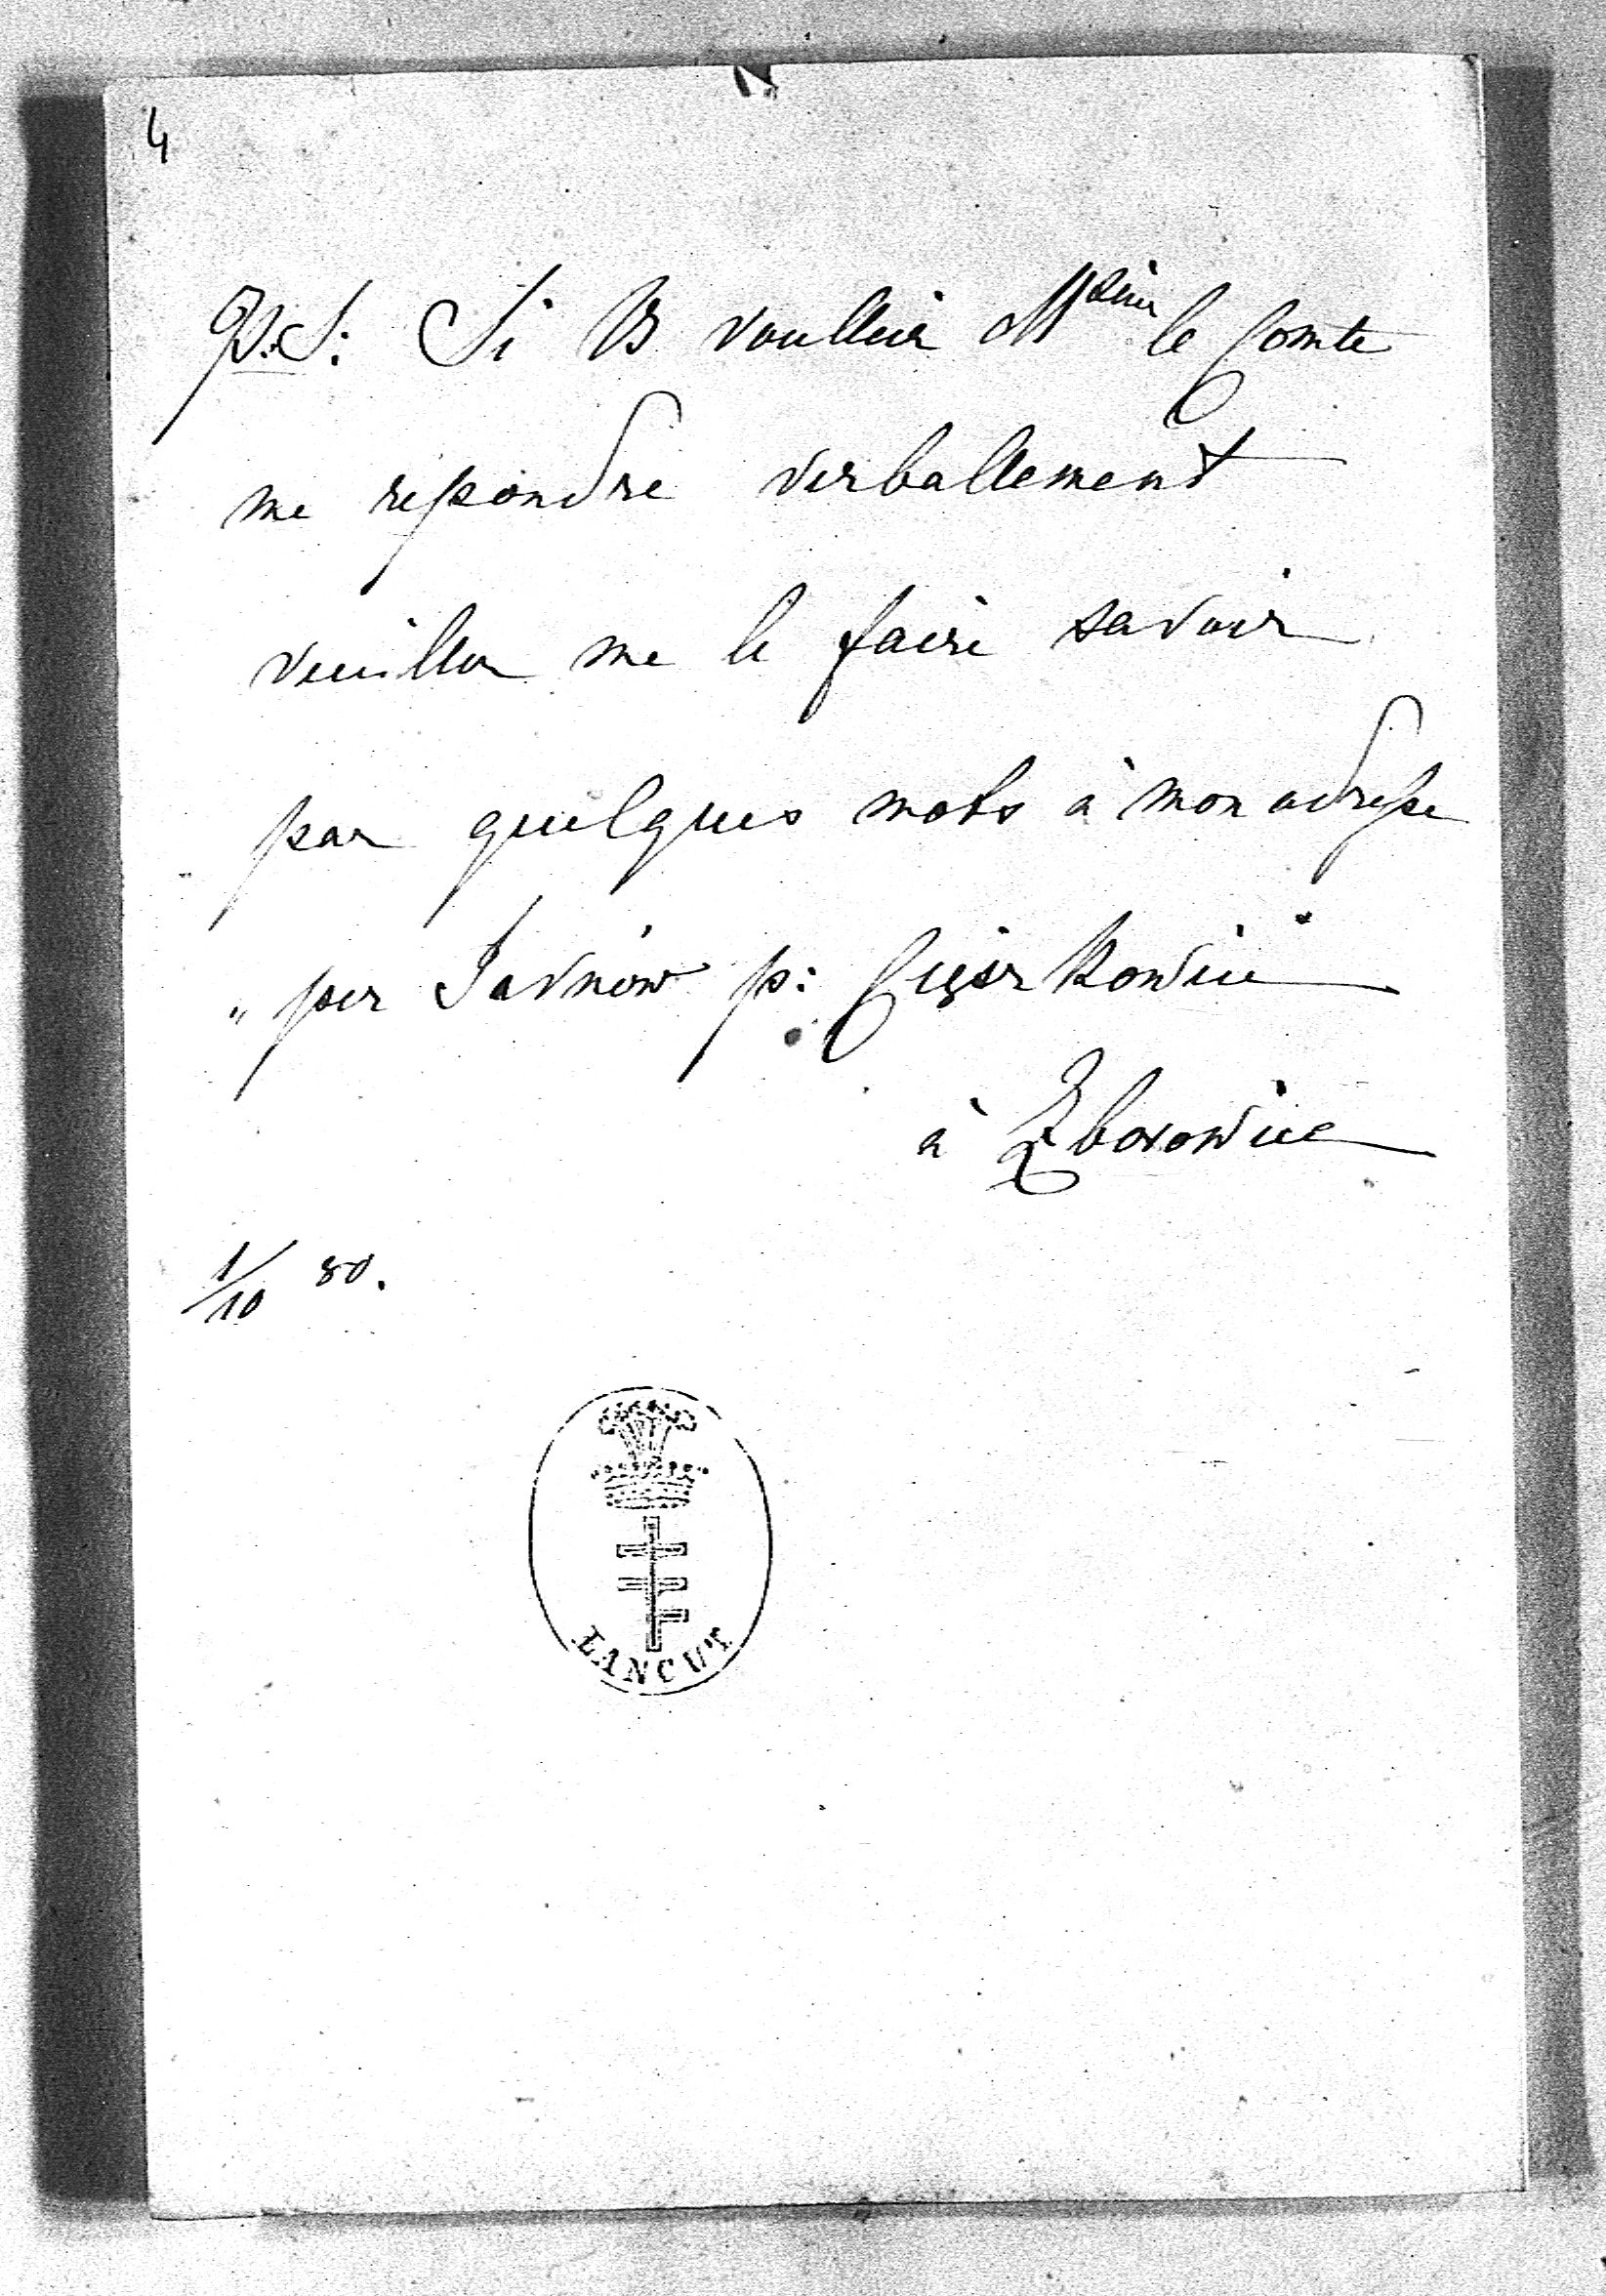 4
P.S: Si Vs voulliez Msieur le Comte
me repondre verballement
veuillez me le faire savoir
par quelques mots à mon adresse
„ per Tarnów p: Ciężkowice
à Zborowice
1/10 80.
LANCUT